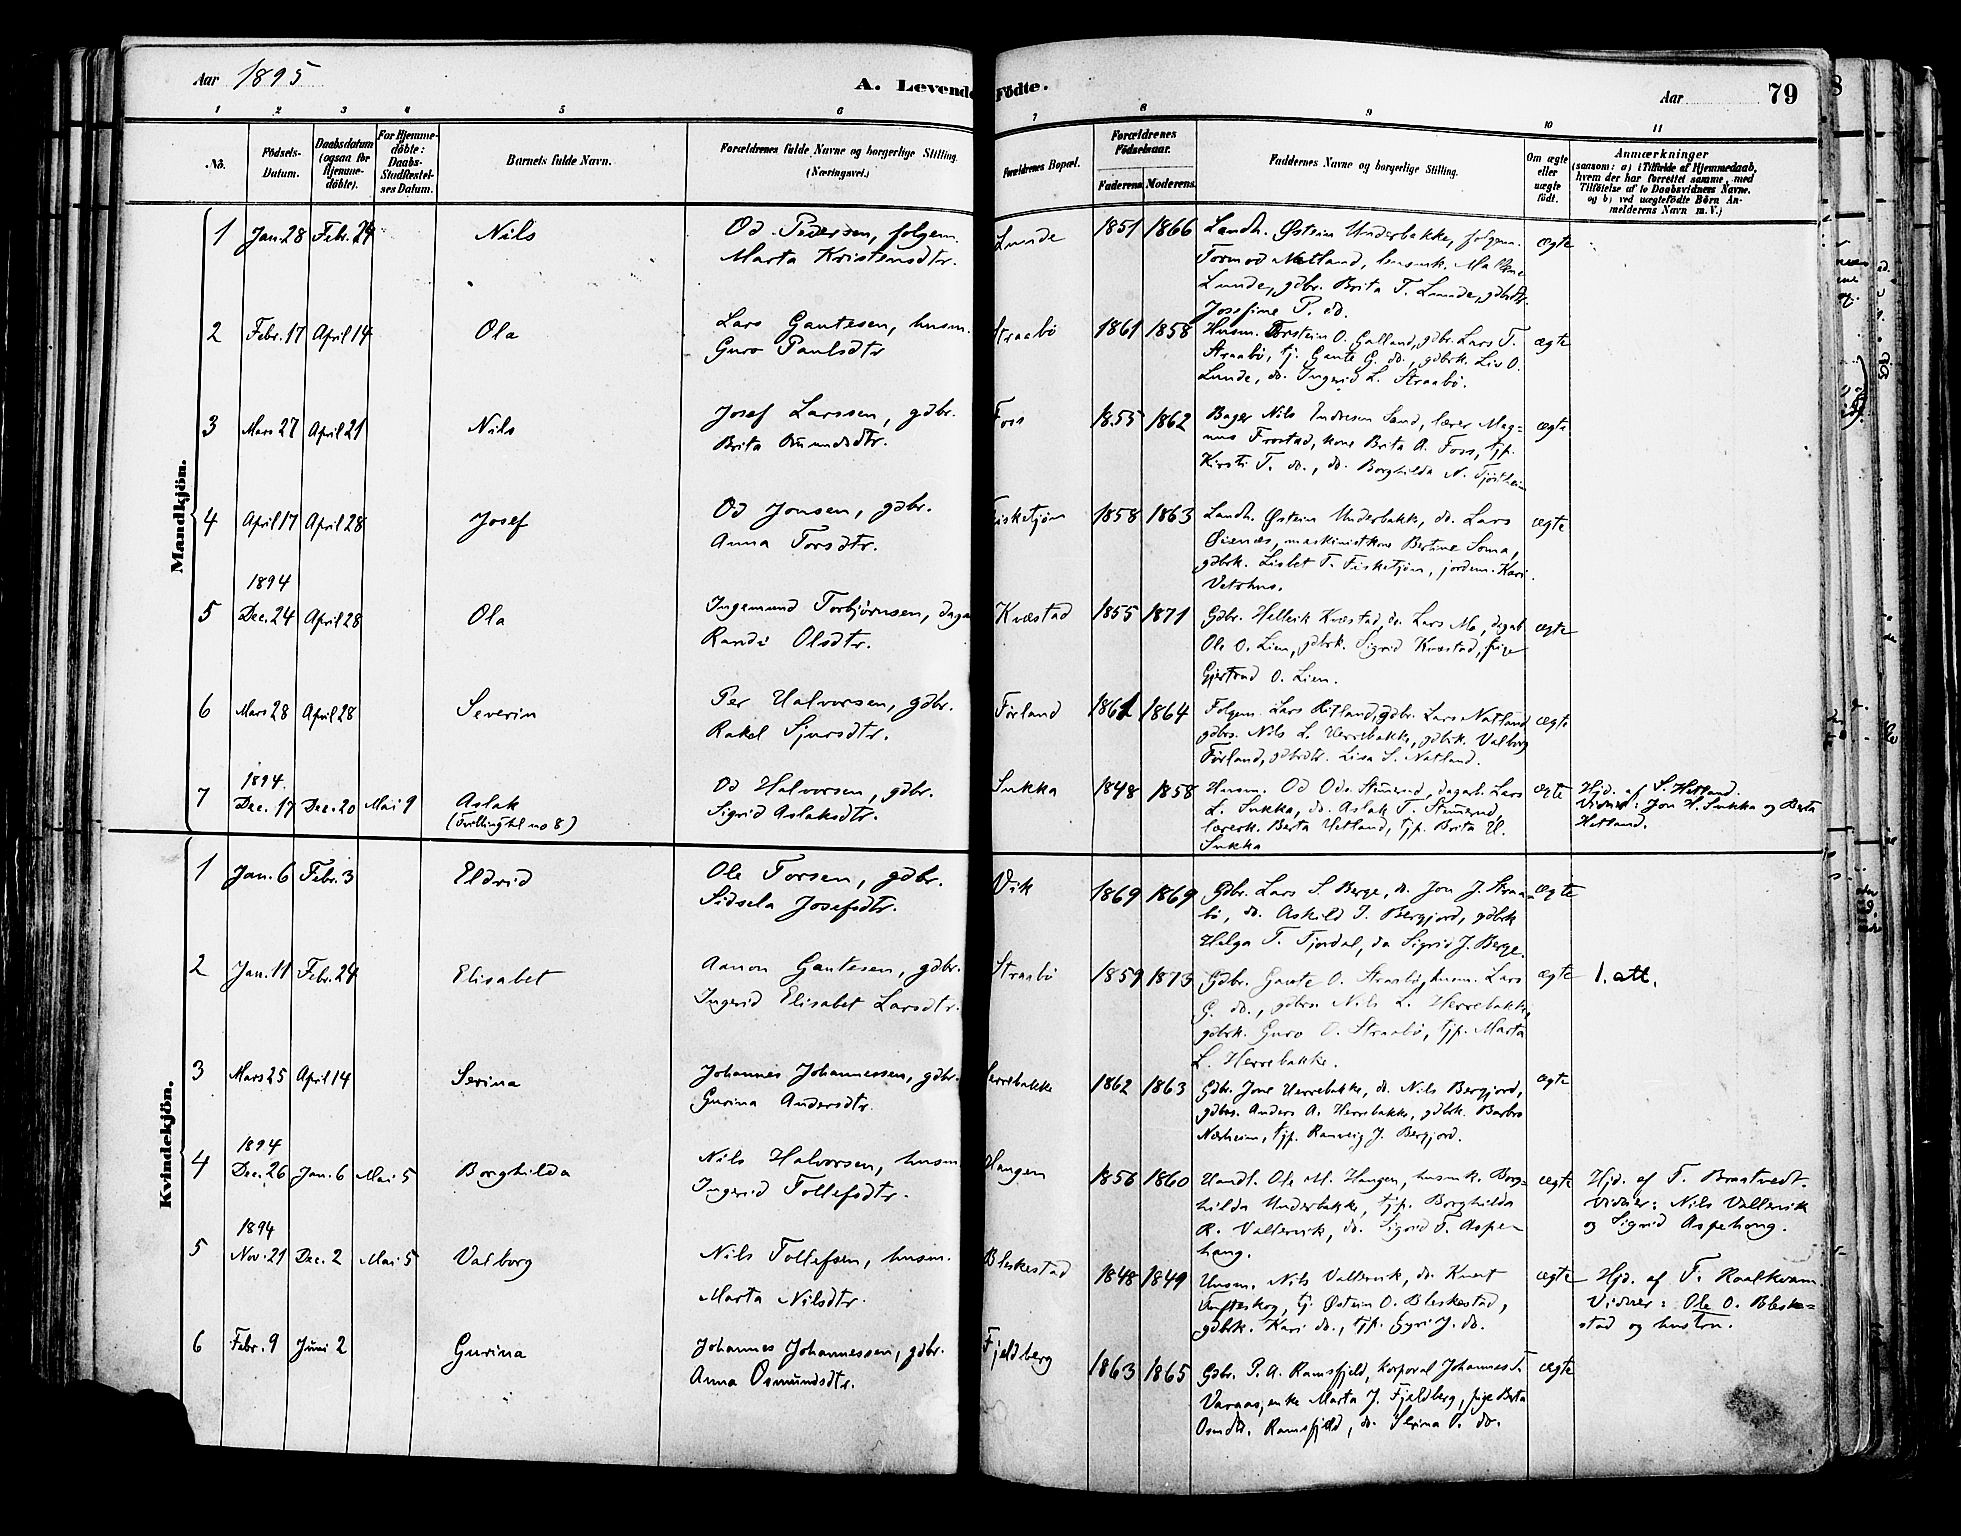 Aar 1895
A. Levende Födte.
Aar 79
1 2 3 4 5 6 7 8 9 10 11
No.
Födsels-Datum.
Daabsdatum (ogsaa for Hjemme-döbte).
For Hjemme-döbte: Daabs-Stadfæstel-ses Datum.
Barnets fulde Navn.
Forældrenes fulde Navne og borgerlige Stilling. (Næringsvei.)
Forældrenes Bopæl.
Forældrenes Födselsaar.
Faderens Moderens
Faddernes Navne og borgerlige Stilling.
Om ægte eller uægte födt.
Anmærkninger
(saasom: a) i Tilfælde af Hjemmedaab,
hvem der har forrettet samme, med
Tilföielse af to Daabsvidners Navne.
og b) ved uægtefödte Börn An-
melderens Navn m. V.)
Mandkjön.
1 Jan. 28 Febr. 24 Nils
Od Pedersen, folgem.
Marta Kristensdtr.
Lunde 1851 1866
Landh. Østein Underbakke, folgem.
Tormod Natland, husmk. Malene
Lunde, gdbr. Brita T. Lunde, gdbrdtr.
Josefine P. do.
ægte
2 Febr. 17 April 14 Ola
Lars Gautesen, husm.
Guro Paulsdtr
Straabø 1861 1858
Husm. Torstein O. Galland, gdbr. Lars T.
Straabø, tj. Gaute G. do., gdbrk. Liv O.
Lunde, do. Ingerid L. Straabø.
ægte
3 Mars 27 April 21 Nils
Josef Larssen, gdbr.
Brita Åmundsdtr.
Foss 1855 1862
Bager Nils Indresen Sand, lærer Mag=
nus Frostad, kone Brita A. Foss, tjp.
Kirsti T. do., do. Borghilda N. Tjøstheim
ægte
4 April 17 April 28 Josef
Od Jonsen, gdbr.
Anna Torsdtr.
Fisketjøn 1858 1863
Landh. Østein Underbakk, do. Lars
Øienæs, maskinistkone Bertine Soma,
gdbrk. Lisbet T. Fisketjøn, jordem. Kari
Vetrhus.
ægte
5 1894 Dec. 24 April 28 Ola
Ingemund Torbjørnsen, dagar
Randi Olsdtr.
Kvæstad 1855 1871
Gdbr. Hellerik Kvæstad, do. Lars Mo, dagarb.
Ole O. Lien, gdbrk. Sigrid Kvæstad, pige
Gjertrud O. Lien.
ægte
6 Mars 28 April 28 Severin
Per Halvorsen, gdbr.
Rakel Sjursdtr.
Førland 1861 1864
Folgem. Lars Ritland, gdbr. Lars Natland
gdbrs. Nils L. Herrebakke, gdbrk. Valborg
Førland, gdbrdtr. Lisa S. Natland.
ægte
7 1894. Dec. 17 Dec. 20 Mai 9 Aslak
(tvilling til no 8)
Od Halvorsen, gdbr.
Sigrid Aslaksdtr.
Sukka 1848 1858
Husm. Od Ods. Stumrud, dagarb. Lars
L. Sukka, do. Aslak T. Stumrud,
lærerk. Berta Hetland, tjp. Brita H.
Sukka
ægte
Hjd. af S. Hetland.
Vidner: Jon H. Sukka og Berta
Hetland.
Kvindekjön.
1 Jan. 6 Febr. 3 Eldrid
Ole Torsen, gdbr.
Sidsela Josefsdtr.
Vik 1869 1869
Gdbr. Lars S. Berge, do. Jon J. Straa=
bø, do. Askild I. Bergjord, gdbrk
Helga T. Tjordal, do Sigrid J. Berge.
ægte
2 Jan. 11 Febr. 24 Elisabet
Aanon Gautesen, gdbr.
Ingerid Elisabet Larsdtr.
Straabø 1859 1873
Gdbr. Gaute O. Straabø, husm. Lars
G. do., gdbrs. Nils L. Herrebakke,
gdbrk. Guro O. Straabø, tjp. Marta
L. Herrebakke.
ægte
1. att.
3 Mars 25 April 14 Serina
Johannes Johannessen, gdbr.
Gurina Andersdtr.
Herrebakke 1862 1863
Gdbr. Jone Herrebakke, do. Nils Bergjord,
gdbrs. Anders A. Herrebakke, gdbrk. Barbro
Nærheim, tjp. Ranveig J. Bergjord.
ægte
4 1894 Dec. 26 Jan. 6 Mai 5 Borghilda
Nils Halvorsen, husm.
Ingerid Tollefsdtr.
Haugen 1856 1860
Handl. Ole M. Haugen, husmk. Borg=
hilda Underbakke, tjp. Borghilda
R. Vallervik, do. Sigrid T. Aspe=
haug.
ægte
Hjd. af T. Braatvedt.
Vidner: Nils Vallervik
og Sigrid Aspehaug.
5 1894 Nov. 21 Dec. 2 Mai 5 Valborg
Nils Tollefsen, husm.
Marta Nilsdtr.
Bleskestad 1848 1849
Husm. Nils Vallervik, do. Knut
Tufteskog, tj. Østein O. Bleskestad,
gdbrk. Kari do., tjp. Gyri J. do.
ægte
Hjd. af T. Roalkvam.
Vidner: Ole O. Bleske=
stad og hustru.
6 Febr. 9 Juni 2 Gurina
Johannes Johannessen, gdbr.
Anna Osmundsdtr.
Fjeldberg 1863 1865
Gdbr. P. A. Ramsfjeld, korporal Johannes T.
Varaas, enke Marta J. Fjeldberg, pige Berta
Osmdtr. Ramsfjeld, do. Serina O. do.
ægte